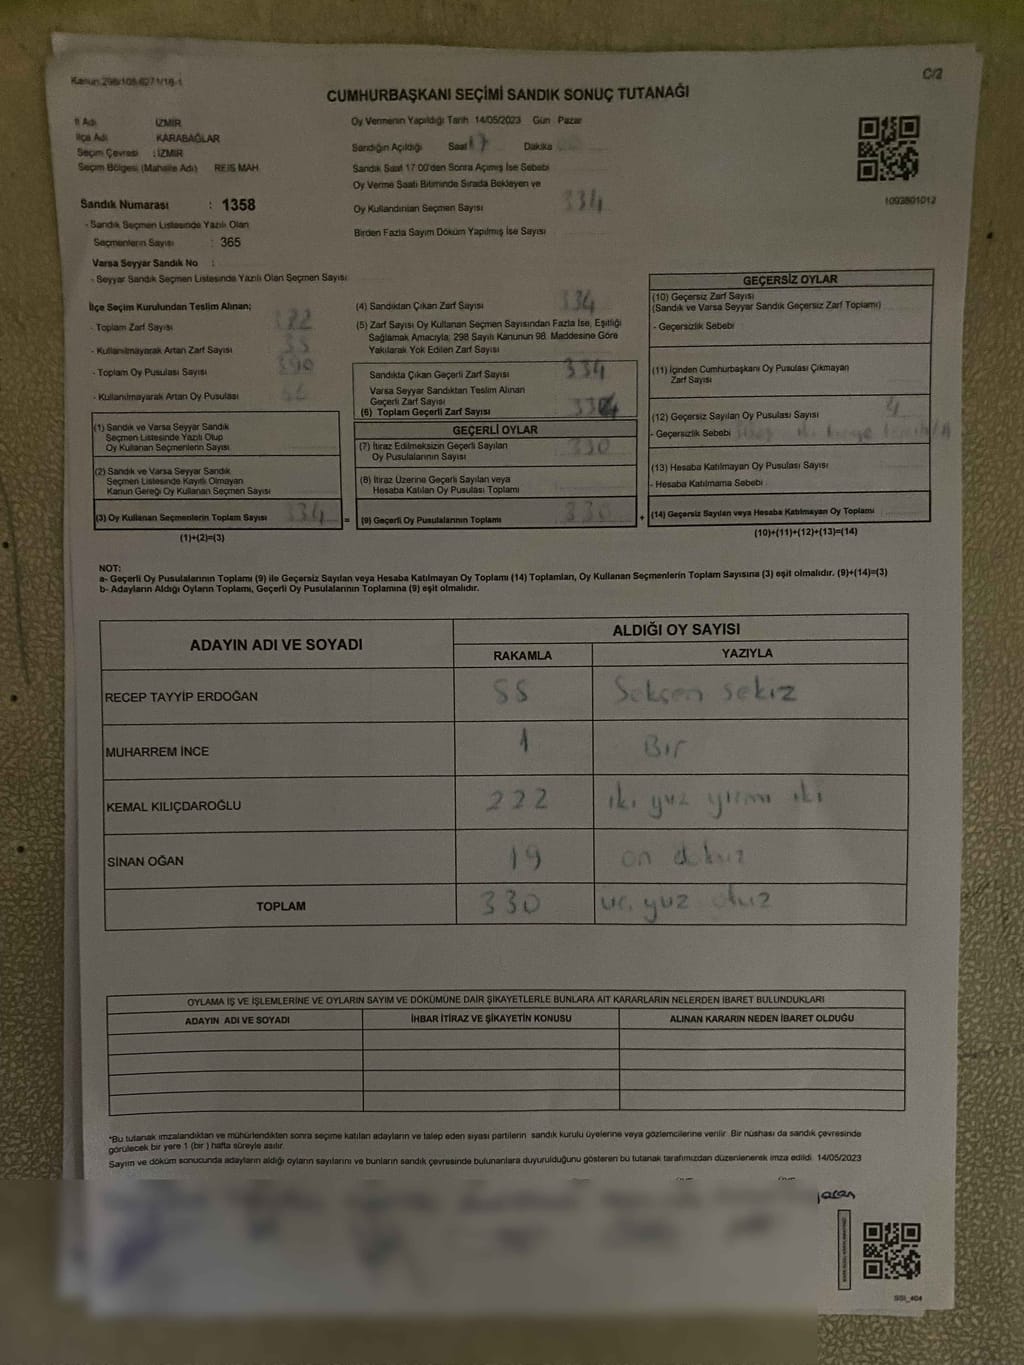 Kanun:298/105-6271/16-1
C/2
CUMHURBAŞKANI SEÇİMİ SANDIK SONUÇ TUTANAĞI
İl Adı İZMİR
İlçe Adı KARABAĞLAR
Seçim Çevresi : İZMİR
Seçim Bölgesi (Mahalle Adı) REIS MAH
Sandık Numarası : 1358
- Sandık Seçmen Listesinde Yazılı Olan
Seçmenlerin Sayısı : 365
Varsa Seyyar Sandık No :
- Seyyar Sandık Seçmen Listesinde Yazılı Olan Seçmen Sayısı
Oy Vermenin Yapıldığı Tarih 14/05/2023 Gün Pazar
Sandığın Açıldığı Saat 17 Dakika
Sandık Saat 17:00'den Sonra Açımış İse Sebebi
Oy Verme Saati Bitiminde Sırada Bekleyen ve
Oy Kullandırılan Seçmen Sayısı 334
Birden Fazla Sayım Döküm Yapılmış İse Sayısı
1093801012
İlçe Seçim Kurulundan Teslim Alınan;
- Toplam Zarf Sayısı
- Kullanılmayarak Artan Zarf Sayısı
- Toplam Oy Pusulası Sayısı 390
- Kullanılmayarak Artan Oy Pusulası
(1) Sandık ve Varsa Seyyar Sandık
Seçmen Listesinde Yazılı Olup
Oy Kullanan Seçmenlerin Sayısı
(2) Sandık ve Varsa Seyyar Sandık
Seçmen Listesinde Kayıtlı Olmayan
Kanun Gereği Oy Kullanan Seçmen Sayısı
(3) Oy Kullanan Seçmenlerin Toplam Sayısı 334 =
(1)+(2)=(3)
(4) Sandıktan Çıkan Zarf Sayısı 334
(5) Zarf Sayısı Oy Kullanan Seçmen Sayısından Fazla İse, Eşitliği
Sağlamak Amacıyla, 298 Sayılı Kanunun 98. Maddesine Göre
Yakılarak Yok Edilen Zarf Sayısı
Sandıkta Çıkan Geçerli Zarf Sayısı 334
Varsa Seyyar Sandıktan Teslim Alınan
Geçerli Zarf Sayısı
(6) Toplam Geçerli Zarf Sayısı 334
GEÇERLİ OYLAR
(7) İtiraz Edilmeksizin Geçerli Sayılan
Oy Pusulalarının Sayısı 330
(8) İtiraz Üzerine Geçerli Sayılan veya
Hesaba Katılan Oy Pusulası Toplamı
(9) Geçerli Oy Pusulalarının Toplamı 330 +
GEÇERSİZ OYLAR
(10) Geçersiz Zarf Sayısı
(Sandık ve Varsa Seyyar Sandık Geçersiz Zarf Toplamı)
- Geçersizlik Sebebi
(11) İçinden Cumhurbaşkanı Oy Pusulası Çıkmayan
Zarf Sayısı
(12) Geçersiz Sayılan Oy Pusulası Sayısı 4
- Geçersizlik Sebebi
(13) Hesaba Katılmayan Oy Pusulası Sayısı
- Hesaba Katılmama Sebebi
(14) Geçersiz Sayılan veya Hesaba Katılmayan Oy Toplamı
(10)+(11)+(12)+(13)=(14)
NOT:
a- Geçerli Oy Pusulalarının Toplamı (9) ile Geçersiz Sayılan veya Hesaba Katılmayan Oy Toplamı (14) Toplamları, Oy Kullanan Seçmenlerin Toplam Sayısına (3) eşit olmalıdır. (9)+(14)=(3)
b- Adayların Aldığı Oyların Toplamı, Geçerli Oy Pusulalarının Toplamına (9) eşit olmalıdır.
ADAYIN ADI VE SOYADI ALDIĞI OY SAYISI
RAKAMLA YAZIYLA
RECEP TAYYİP ERDOĞAN 88 Seksen sekiz
MUHARREM İNCE 1 Bir
KEMAL KILIÇDAROĞLU 222 iki yuz yirmi iki
SİNAN OĞAN 19 on dokuz
TOPLAM 330 üç yuz otuz
OYLAMA İŞ VE İŞLEMLERİNE VE OYLARIN SAYIM VE DÖKÜMÜNE DAİR ŞİKAYETLERLE BUNLARA AİT KARARLARIN NELERDEN İBARET BULUNDUKLARI
ADAYIN ADI VE SOYADI İHBAR İTİRAZ VE ŞİKAYETİN KONUSU ALINAN KARARIN NEDEN İBARET OLDUĞU
*Bu tutanak imzalandıktan ve mühürlendikten sonra seçime katılan adayların ve talep eden siyasi partilerin sandık kurulu üyelerine veya gözlemcilerine verilir. Bir nüshası da sandık çevresinde
görülecek bir yere 1 (bir) hafta süreyle asılır.
Sayım ve döküm sonucunda adayların aldığı oyların sayılarını ve bunların sandık çevresinde bulunanlara duyurulduğunu gösteren bu tutanak tarafımızdan düzenlenerek imza edildi. 14/05/2023
SSI_404